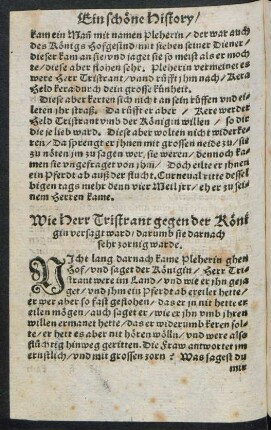 Ein schöne History/
kam ein Mañ mit namen Pleherin/ der war auch
des Königs Hofgesind/ mit sieben seiner Diener/
dieser kam an sie/ vnd jaget sie so meist als er moch-
te/ diese aber flohen sehr. Pleherin vermeinet es
were Herr Tristrant/ vnnd rüfft jhn nach/ Kera
Held kera durch dein grosse künheit.
Diese aber kerten sich nicht an sein rüffen vnd ei-
leten jhr straß. Da rüfft er aber/ Kere werder
Held Tristrant vmb der Königin willen/ so dir
die je lieb ward. Diese aber wolten nicht widerke-
ren/ Da sprengt er jhnen mit grossen neide zu/ sie
zu nöten jm zu sagen wer, sie weren/ dennoch ka-
men sie vngefraget von jhm/ Doch eilte er jhnen
ein Pferd ab auß der flucht. Curneual ritte dessel
bigen tags mehr denn vier Meil jrr/ eh er zu sei-
nem Herren kame.
Wie Herr Tristrant gegen der Köni
gin versagt ward/ darumb sie darnach
sehr zornig warde.
NIcht lang darnach kame Pleherin ghen
Hof/ vnd saget der Königin/ Herr Tri-
strant were im Land/ vnd wie er jhn geja
get/ vnd jhm ein Pferdt ab ereilet hette/
er wer aber so fast geflohen/ das er jn nit hette er
eilen mögen/ auch saget er/ wie er jhn vmb jhren
willen ermanet hette/ das er widerumb keren sol-
te/ er hett es aber nit hören wölln/ vnd were also
flüchtig hinweg geritten. Die Fraw antwortet jm
ernstlich/ vnd mit grossen zorn: Was sagest du
mir